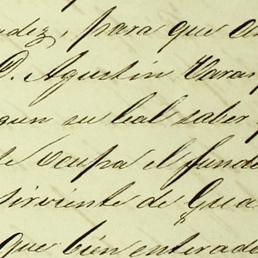 dez, para que
D. Agustin Varas
gun su leal saber
le ocupa el fundo
sirviente de Gua
que bien enterado